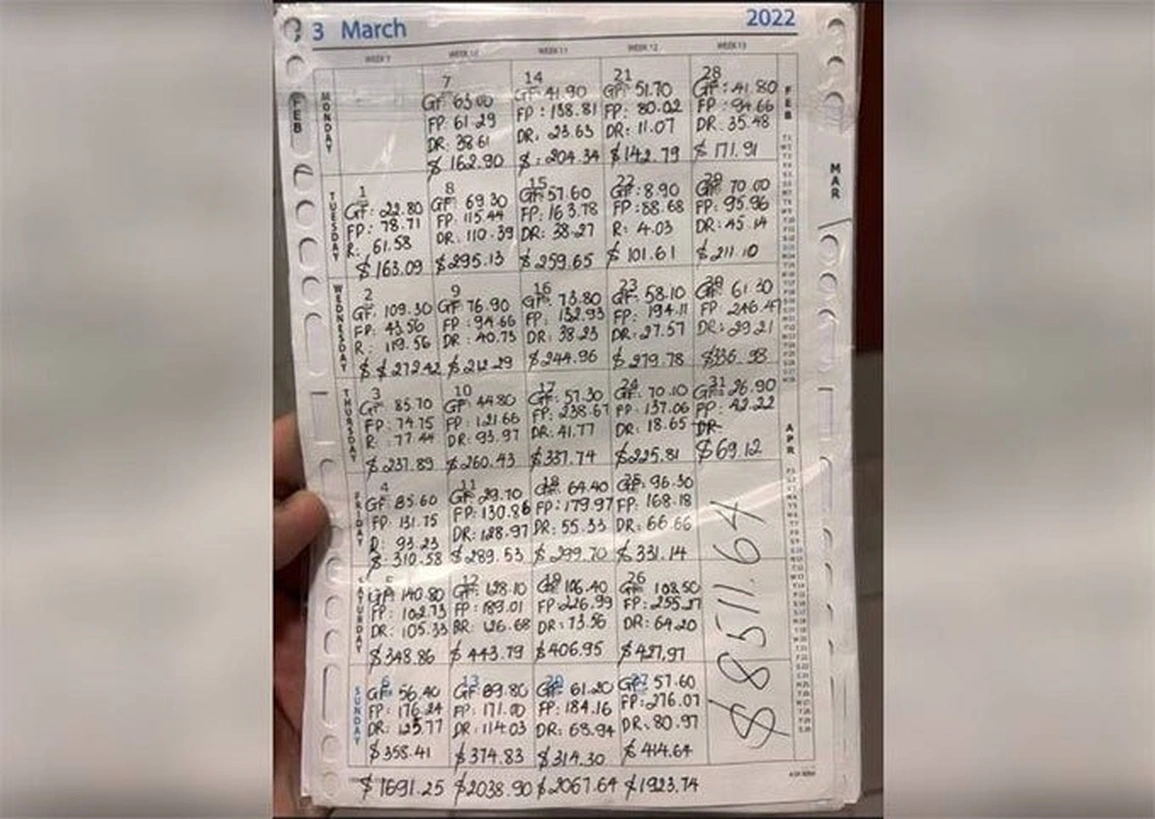 3 March 2022
WEEK 10 WEEK 11 WEEK 12 WEEK 13
MONDAY
7
GF: 63.00
FP: 61.29
DR: 38.61
$ 162.90
14
GF: 41.90
FP: 138.81
DR: 23.63
$: 204.34
21
GF: 51.70
FP: 80.02
DR: 11.07
$ 142.79
28
GF: 41.80
FP: 94.66
DR: 35.48
$ 171.91
TUESDAY
1
GF: 22.80
FP: 78.71
R: 61.58
$ 163.09
8
GF: 69.30
FP: 115.44
DR: 110.39
$ 295.13
15
GF: 57.60
FP: 163.78
DR: 38.27
$ 259.65
22
GF: 8.90
FP: 88.68
R: 4.03
$ 101.61
29
GF: 70.00
FP: 95.96
DR: 45.14
$ 211.10
WEDNESDAY
2
GF: 109.30
FP: 43.56
R: 119.56
$ $ 272.42
9
GF: 76.90
FP: 94.66
DR: 40.73
$ 212.29
16
GF: 73.80
FP: 132.93
DR: 38.23
$ 244.96
23
GF: 58.10
FP: 194.11
DR: 27.57
$ 279.78
30
GF: 61.30
FP: 246.47
DR: 29.21
$ 336.98
THURSDAY
3
GF: 85.70
FP: 74.75
R: 77.44
$ 237.89
10
GF: 44.80
FP: 121.66
DR: 93.97
$ 260.43
17
GF: 57.30
FP: 238.67
DR: 41.77
$ 337.74
24
GF: 70.10
FP: 137.06
DR: 18.65
$ 225.81
31
GF: 26.90
FP: 42.22
DR-
$ 69.12
FRIDAY
4
GF: 85.60
FP: 131.75
R: 93.23
$ 310.58
11
GF: 29.70
FP: 130.86
DR: 128.97
$ 289.53
18
GF: 64.40
FP: 179.97
DR: 55.33
$ 299.70
25
GF: 96.30
FP: 168.18
DR: 66.66
$ 331.14
SATURDAY
5
GF: 140.80
FP: 102.73
DR: 105.33
$ 348.86
12
GF: 128.10
FP: 189.01
DR: 126.68
$ 443.79
19
GF: 106.40
FP: 226.99
DR: 73.56
$ 406.95
26
GF: 108.50
FP: 255.27
DR: 64.20
$ 427.97
SUNDAY
6
GF: 56.40
FP: 176.24
DR: 125.77
$ 358.41
13
GF: 89.80
FP: 171.00
DR: 114.03
$ 374.83
20
GF: 61.20
FP: 184.16
DR: 68.94
$ 314.30
27
GF: 57.60
FP: 276.07
DR: 80.97
$ 414.64
$ 8511.64
$ 1691.25 $ 2038.90 $ 2067.64 $ 1923.74
FEB
FEB
MAR
APR